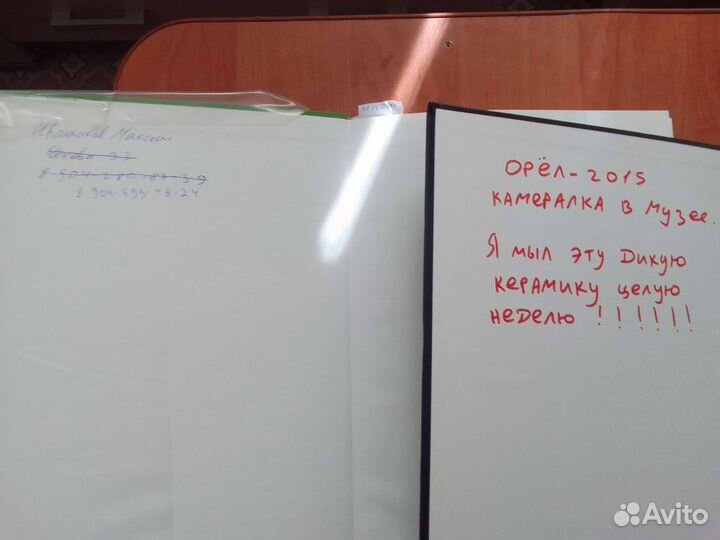 Иванников Максим
8-904-280-83-39
8 904-699-48-24
ОРЁЛ-2015
КАМЕРАЛКА В МУЗЕЕ.
Я МЫЛ ЭТУ ДИКУЮ
КЕРАМИКУ ЦЕЛУЮ
НЕДЕЛЮ !!!!!!
Avito